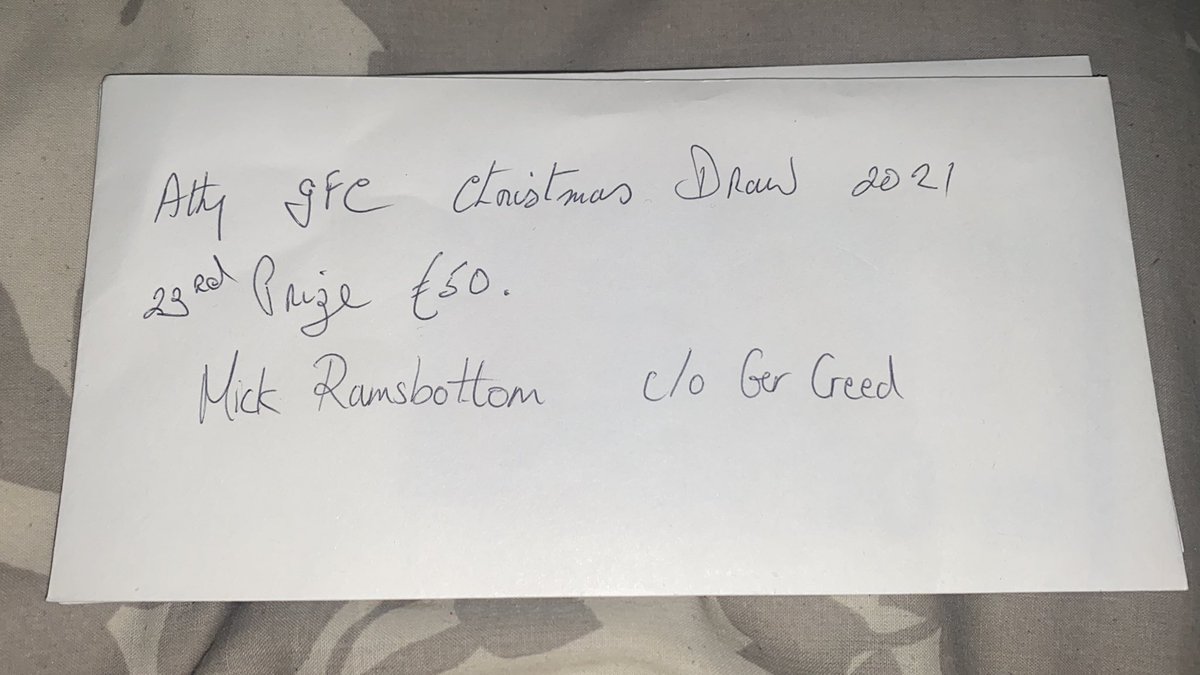 Athy GFC Christmas Draw 2021
23rd Prize €50.
Mick Ramsbottom c/o Ger Creed